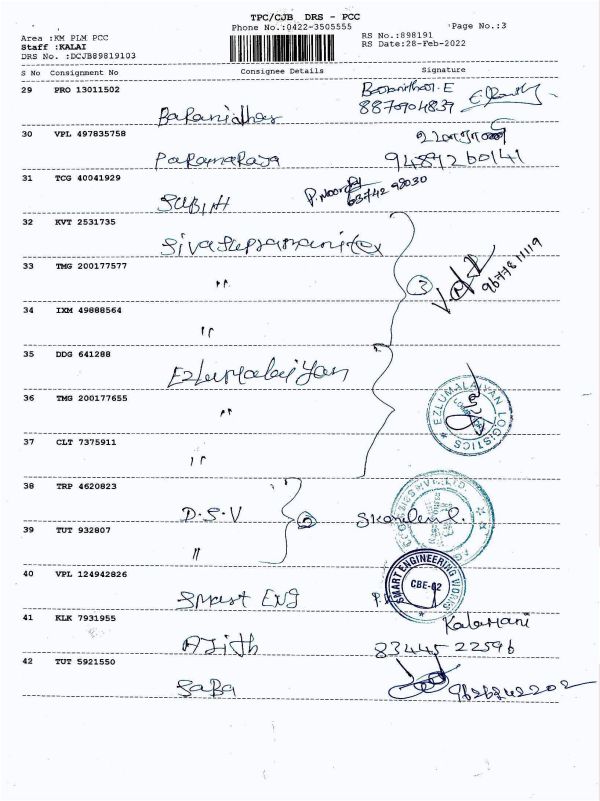 TPC/CJB DRS - PCC
Phone No.:0422-3505555
Page No.:3
Area :KM PLM PCC
RS No.:898191
Staff :KALAI
RS Date:28-Feb-2022
DRS No. :DCJB89819103
S No Consignment No Consignee Details Signature
29 PRO 13011502
Baranidhar
8870904839
30 VPL 497835758
Paramaraja
9487260141
31 TCG 40041929
SUBIH
63742 98030
32 KVT 2531735
33 TMG 200177577
"
3
9677811119
34 IXM 49888564
"
35 DDG 641288
Ezlumalaiyan
36 TMG 200177655
"
EZLUMALAIYAN LOGISTICS
37 CLT 7375911
"
38 TRP 4620823
D.S.V
2
39 TUT 932807
"
40 VPL 124942826
Smart ENG
SMART ENGINEERING WORKS
CBE-02
41 KLK 7931955
Kalamani
Ajith
83445 22596
42 TUT 5921550
Saba
9626842202